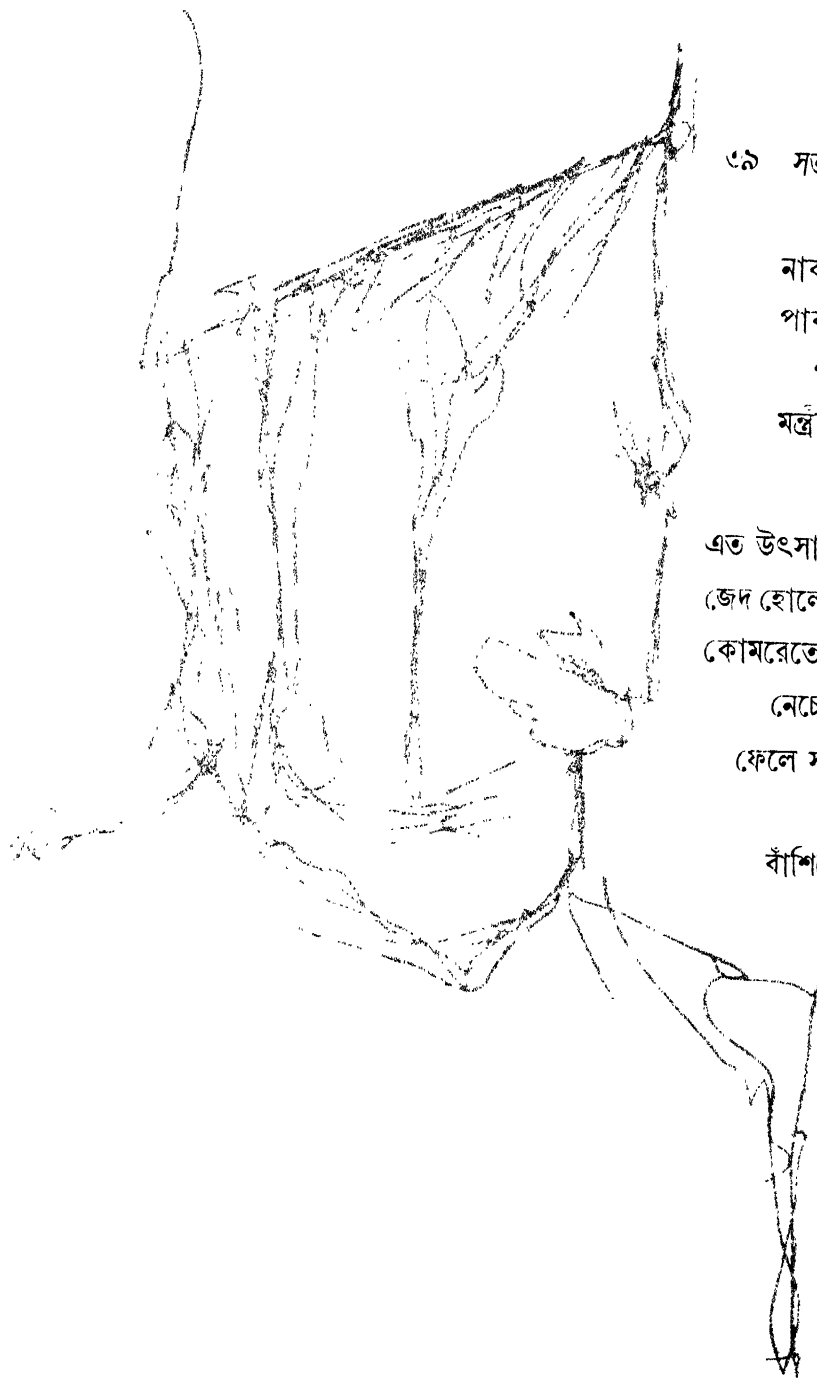 ৩৯ সত
নাব
পাব
মন্ত্র
এত উৎসা
জেদ হোলে
কোমরেতে
নেচে
ফেলে স
বাঁশি